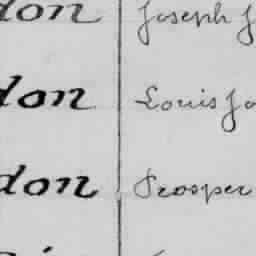 don Joseph J
don Louis Jo
don Prosper